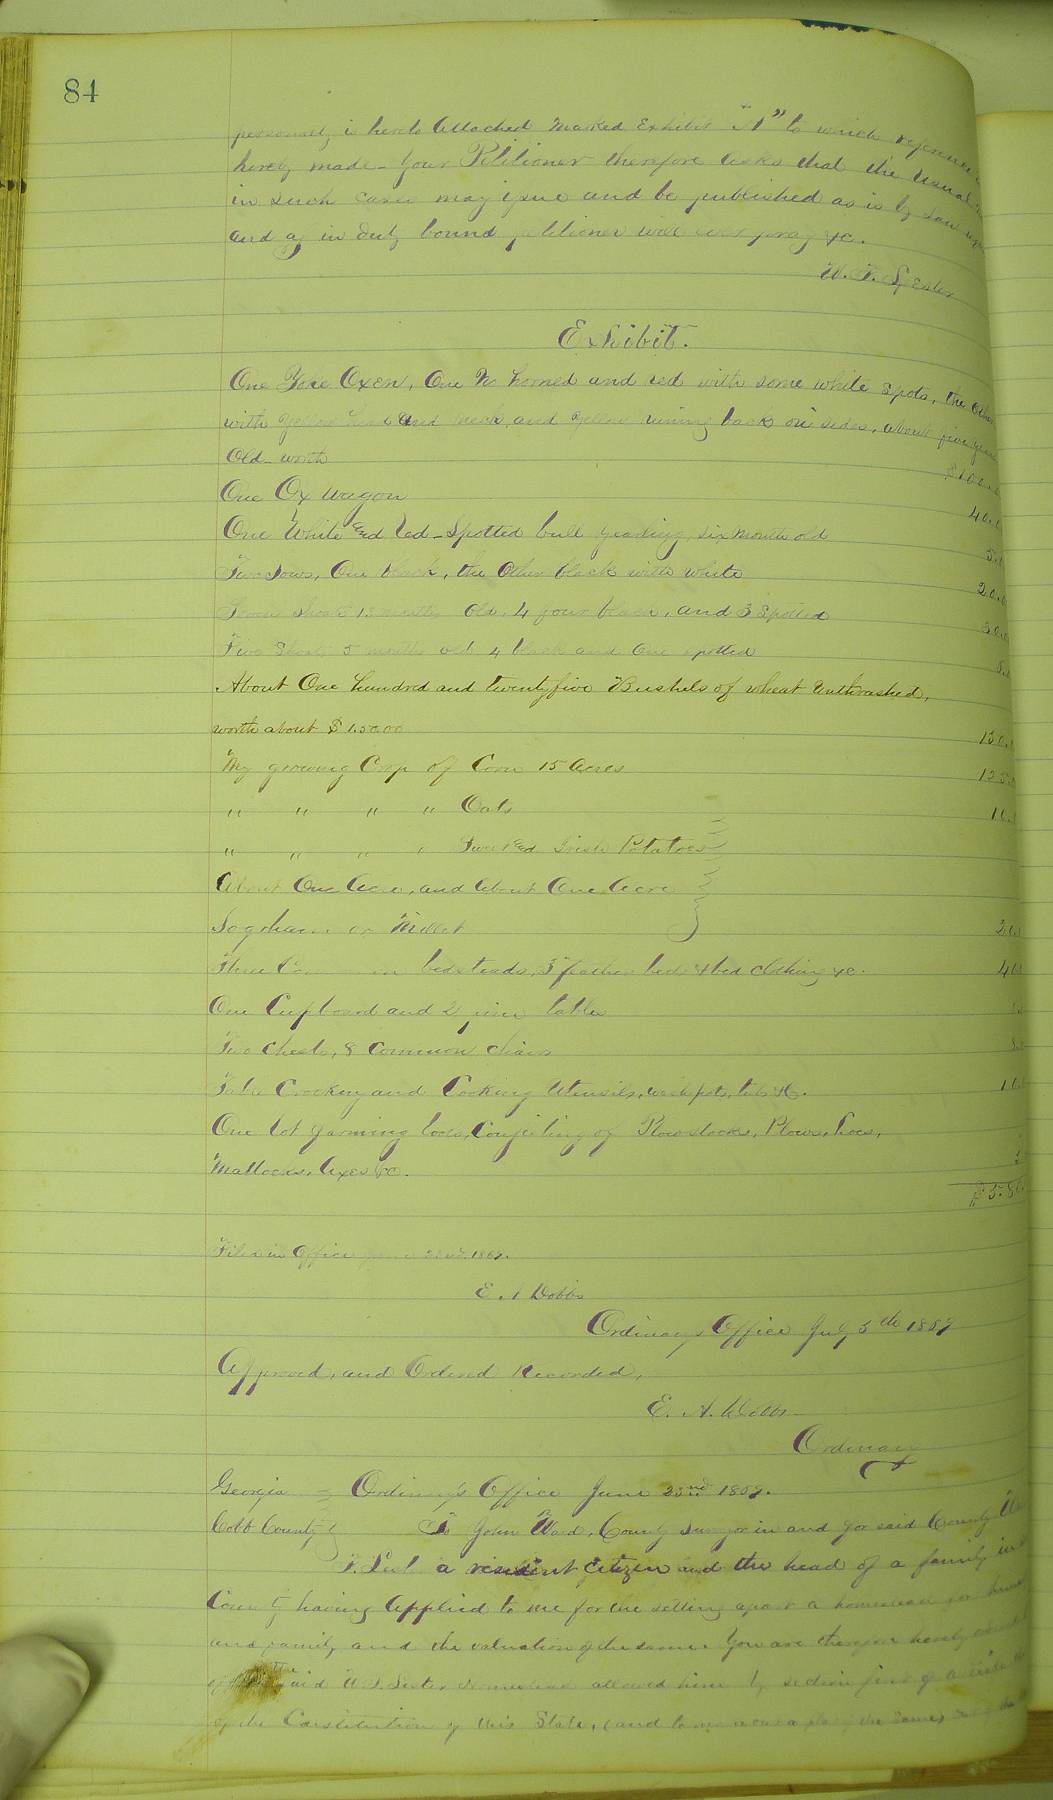 84
personalty is hereto attached marked Exhibit "A" to which reference
hereby made - Your Petitioner therefore asks that the usual
in such cases may issue and be published as is by law
and as in duty bound petitioner will ever pray &c.
W. F.
Exhibit.
One Yoke Oxen, One horned and red with some white spots, the other
with yellow and neck, and yellow runing back on sides, about five years
Old - worth $100.0
One Ox Wagon 40.0
One White and red-Spotted bull yearling, six months old 5.0
Two Sows, One black, the other black with white 20.0
Seven Shoats months old, 4 four black, and 3 Spotted
Five Shoats 5 months old 4 black and One spotted
About One hundred and twentyfive Bushels of wheat Unthrashed,
worth about $1.50.00 150.
My growing Crop of Corn 15 Acres 125.
" " " " Oats 10.
" " " " Irish Potatoes
About One Acre, and About One Acre
or Millet 20
Three bedsteads, feather beds & bed Clothing &c. 40
One Cupboard and 2 pine tables
Two Chests, 8 Common chairs
Crockery and Cooking Utensils, wash pots, tubs &c. 10
One lot farming tools, Consisting of Plow stocks, Plows, hoes,
Mattocks, Axes &c.
$5
Filed in Office June 1869.
E. A Dobbs
Ordinary's Office July 5th 1869
Approved, and Ordered Recorded,
E. A. Dobbs
Ordinary
Georgia Ordinary's Office June 23rd 1869.
Cobb County To John Ward, County Surveyor in and for said County
a resident Citizen and the head of a family in
County having Applied to me for the setting apart a homestead for him
and family and the valuation of the same. You are therefore hereby
the said homestead allowed him by section first of
of the Constitution of this State, (and to make out a plat of the same)